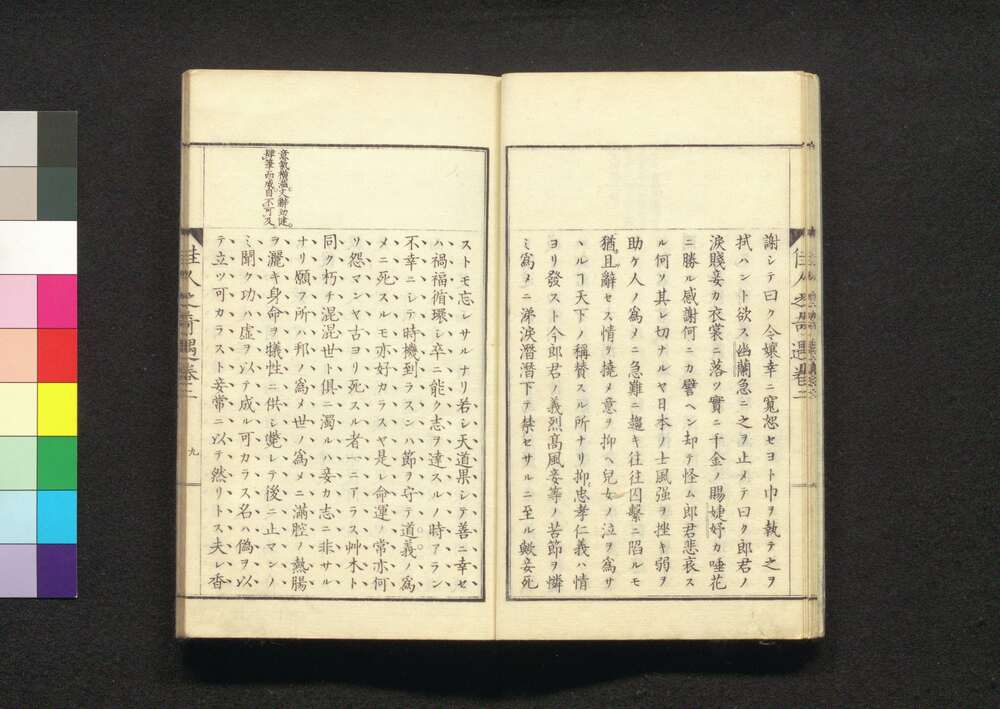 謝シテ曰ク令孃幸ニ寬恕セヨト巾ヲ執テ之ヲ
拭ハント欲ス幽蘭急ニ之ヲ止メテ曰ク郎君ノ
淚賤妾カ衣裳ニ落ツ實ニ千金ノ賜婕妤カ唾花
ニ勝ル感謝何ニカ譬ヘン却テ怪ム郎君悲哀ス
ル何ソ其レ切ナルヤ日本ノ士風强ヲ挫キ弱ヲ
助ケ人ノ爲メニ急難ニ趨キ往往囚繫ニ陷ルモ
猶且辭セス情ヲ撓メ意ヲ抑ヘ兒女ノ泣ヲ爲サ
ヽルヿ天下ノ稱賛スル所ナリ抑忠孝仁義ハ情
ヨリ發スト今郎君ノ義烈高風妾等ノ苦節ヲ憐
ミ爲メニ涕淚潛潛下テ禁セサルニ至ル歟妾死
佳人之奇遇卷二
意氣橫溢文辭勁健
肆筆而成自不可及
ストモ忘レサルナリ若シ天道果シテ善ニ幸セ
ハ禍福循環シ卒ニ能ク志ヲ達スルノ時アラン
不幸ニシテ時機到ラスンハ節ヲ守テ道義ノ爲
メニ死スルモ亦好カラスヤ是レ命運ノ常亦何
リ怨マンヤ古ヨリ死スル者一ニアラス艸木ト
同ク朽チ混混世ト俱ニ濁ルハ妾カ志ニ非サル
ナリ願フ所ハ邦ノ爲メ世ノ爲メニ滿腔ノ熱腸
ヲ灑キ身命ヲ犧牲ニ供シ斃レテ後ニ止マンノ
ミ聞ク功ハ虛ヲ以テ成ル可カラス名ハ僞ヲ以
テ立ツ可カラスト妾常ニ以テ然リトス夫レ香
佳人之奇遇卷二
九